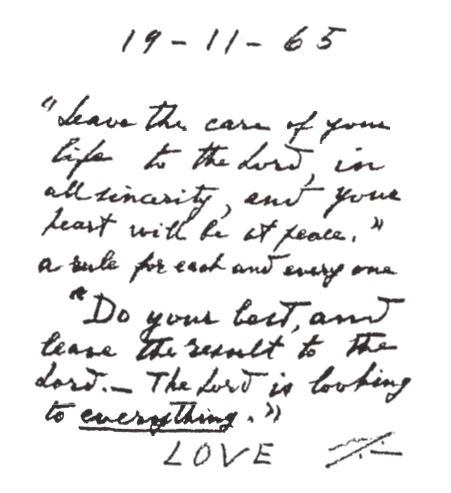 19-11-65
"Leave the care of your
life to the Lord, in
all sincerity, and your
heart will be at peace."
a rule for each and every one
"Do your best, and
leave the result to the
Lord. — The Lord is looking
to everything."
LOVE